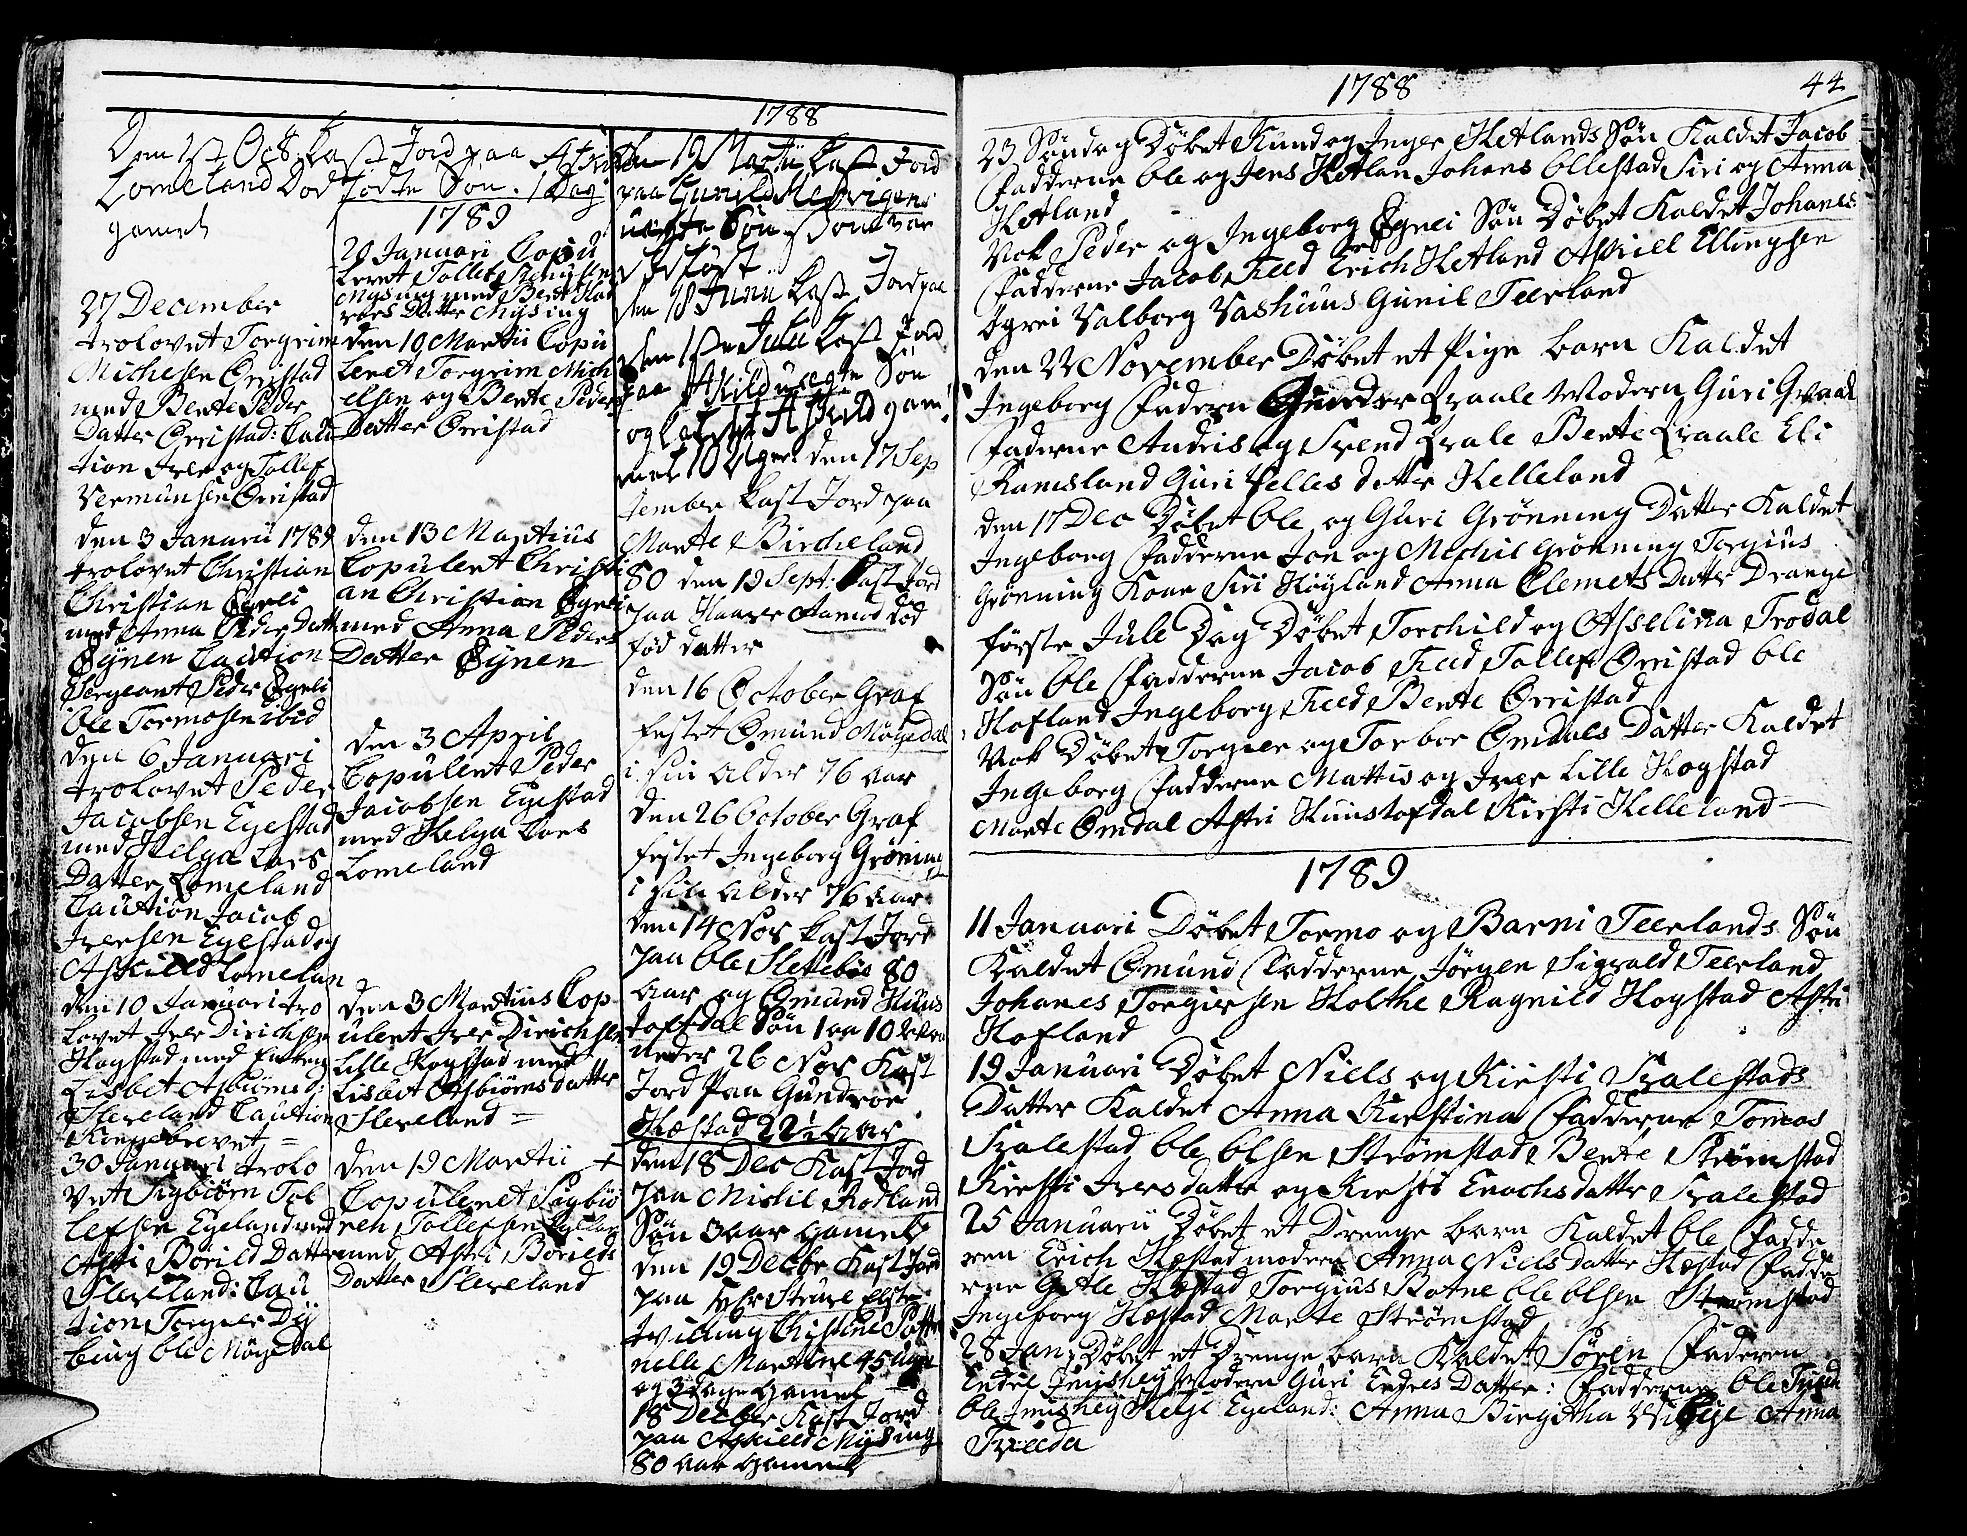 1788
Den 1st Oct. Kast Jord paa
Lomeland Dødfødte Søn. 1 Dag
gamel
27 December
trolovet Torgrim
Michelsen Ørristad
med Bente Peder
Datter Ørristad: Cau
tion Iver og Tollef
Vermunsen Ørristad
den 3 Januarii 1789
trolovet Christian
Christian Egeli
med Anna Peder Datt
Øÿnen Caution
Sergeant Peder Egeli
Ole Tormosen ibid
den 6 Januari
trolovet Peder
Jacobsen Egestad
med Helga Lars
Datter Lomeland
Caution Jacob
Iversen Egestad og
Askield Lomelan
den 10 Januari tro
lovet Iver Dirichsen
Hogstad med
Lisbet Asbiørns d:
Sleveland Caution
Kongebrevet =
30 Januari trolo
vet Sigbiørn Tol
lefsen Egeland med
Asti Børild Datter
Sleveland: Cau
tion Torger Dÿ
bing Ole Møgedal
1789
29 Januarii Copu
leret Tollef
Mysing med Bent
Datter Mysing
den 19 Martii Copu
leret Torgrim Mich
elsen og Bente Peder
Datter Ørristad
den 13 Martius
Copuleret Christi
an Christian Egeli
med Anna Peders
Datter Øÿnen
den 3 April
Copuleret Peder
Jacobsen Egestad
med Helga Lars
Lomeland
den 3 Martius Cop
uleret Iver Dirichsen
Lille Hogstad med
Lisbet Asbiørns datter
Sleveland =
den 19 Martii +
Copuleret Sigbiø
ren Tollefsen Egelan
med Astri Børilds
Datter Sleveland
den 19 Martii Kast Jord
paa Gunild
uegte Søn som var
den 18 Junii Kast Jord paa
den 1ste Julii Kast Jord
paa Askild uegte Søn
og
mel 10 Uger. den 17 Sep
tember Kast Jord paa
Marte Bircheland
80 den 19 Sept: Kast Jord
paa Haaver Aamod død
fød datter
den 16 October Graf
festet Omund Møgedal
i sin alder 76 aar
den 26 October Graf
festet Ingeborg Grøning
i sin alder 76 aar
den 14 Nov Kast Jord
paa Ole Slettebø 80
aar og Omund Huus
tofsdal Søn 1 aa 10 Maa
neder 26 Nov Kast
Jord paa Gundroe
Hæstad 22½ aar
den 18 Dec Kast Jord
paa Michil Rodland
Søn 3 aar Gamel
den 19 Decbr Kast Jord
paa Hr Steure
tvilling Christine Pætter
nelle Martine 45 Uger
og 3 dage Gamel
18 December Kast Jord
paa Askield Mÿsing
80 aar Gamel
1788
44
23 Søndag Døbet Knud og Inger Hetlands Søn Kaldet Jacob
Fadderne Ole og Jens Hetlan Johans Ollestad Siri og Anna
Hetland
Nok Peder og Ingeborg Egeli Søn Døbet Kaldet Johanes
Fadderne Jacob Feed Erich Hetland Askiell Ellingsen
Ogrei Valborg Vashuus Gunil Teerland
den 22 November Døbet et Pige barn Kaldet
Ingeborg Fadern Gunder Qvaale Modern Guri Graad
Faderne Andris og Svend Qvale Bente Qvaale Eli
Ramsland Guri Helles datter Helleland
den 17 Dec Døbet Ole og Guri Grønning Datter Kaldet
Ingeborg Fadderne Jon og Michil Grønning Torgius
Grønning Kone Siri Høyland Anna Clemets Datter Drange
første Jule Dag Døbet Torchild og Asselina Trodal
Søn Ole Fadderne Jacob Feed Tollef Ørristad Ole
Hofland Ingeborg Feed Bente Ørristad
Nok Døbet Torger og Torbor Omdals Datter Kaldet
Ingeborg Fadderne Mattis og Iver Lille Hogstad
Marte Omdal Astri Huustofdal Kirsti Helleland
1789
11 Januari Døbet Tormo og Barni Teerlands Søn
Kaldet Omund Fadderne Jørgen Sigvald Teerland
Johanes Torgiersen Holthe Ragnild Hogstad Astri
Hofland
19 Januari Døbet Niels og Kirsti Svalestads
Datter Kaldet Anna Kirstina Fadderne Tomas
Svalestad Ole Olsen Strømstad Bente Strømstad
Kirsti Ivers datter og Kirsti Enochs datter Svalestad
25 Januarii Døbet et Drenge barn Kaldet Ole Fadde
ren Erich Hæstad modern Anna Niels datter Hæstad Fadde
rne Gitle Hæstad Torgius Botne Ole Olsen Strømstad
Ingeborg Hæstad Marte Strømstad
28 Jan: Døbet et Drenge barn Kaldet Søren Faderen
Endre Jmishey Modern Guri Endres Datter: Fadderne Ole
Ole Jmishey Helje Egeland: Anna Birgitha Anna
Tveeda